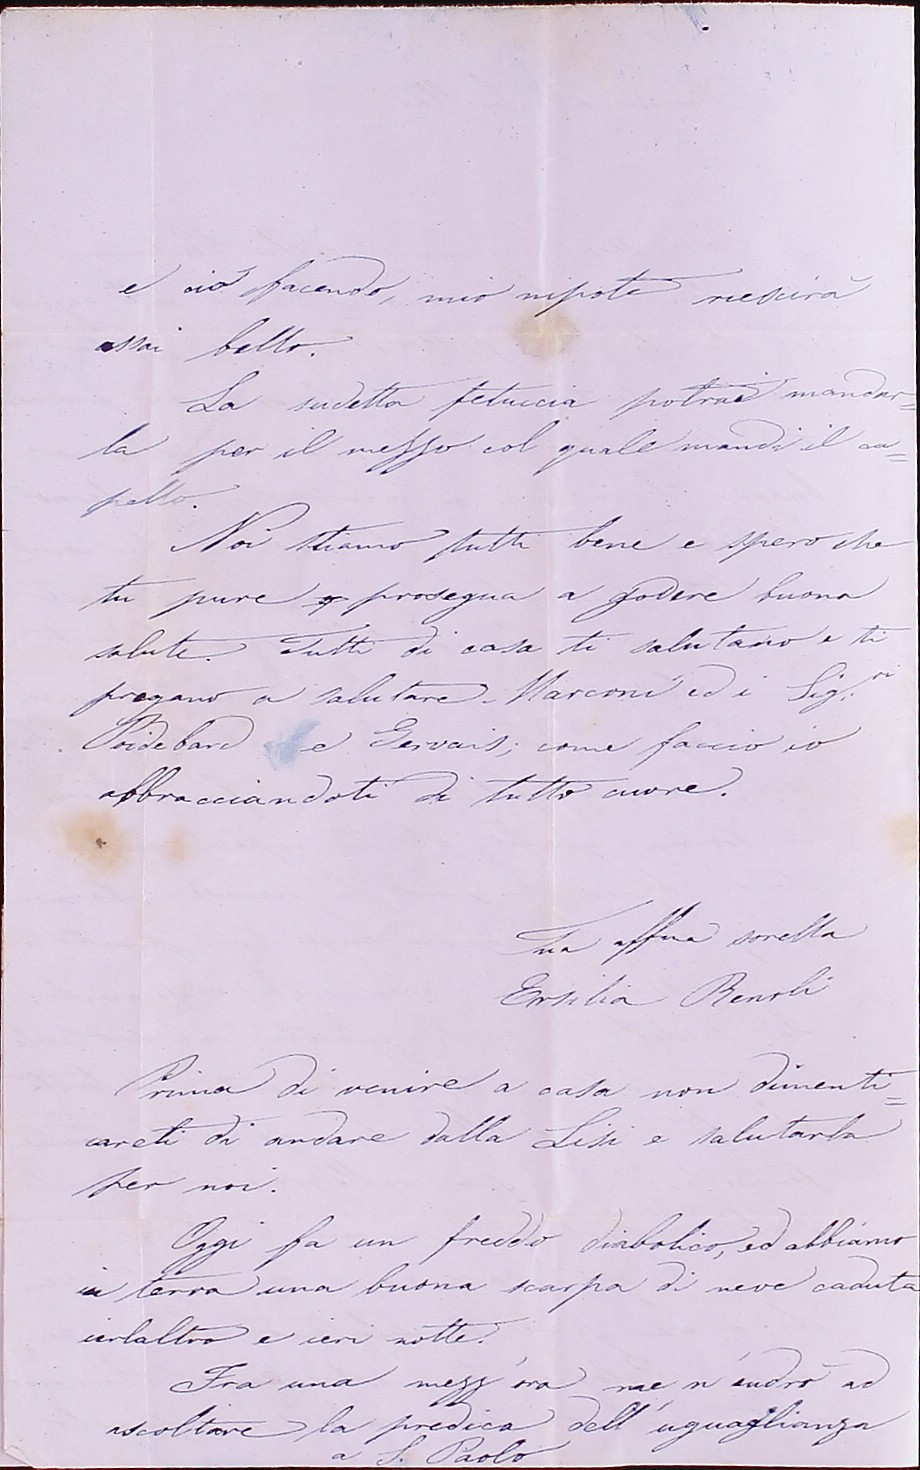 e ciò facendo, mio nipote riescirà
assai bello.
La sudetta fetuccia potrai mandar=
la per il mezzo col quale mandi il ca=
pello.
Noi stiamo tutti bene e spero che
tu pure prosegua a godere buona
salute. Tutti di casa ti salutano e ti
pregano a salutare Marconi ed i Sig.ri
Poidebard e Gervais; come faccio io
abbracciandoti di tutto cuore.
Tua affma sorella
Ersilia Renoli
Prima di venire a casa non dimenti=
careti di andare dalla Lisi e salutarla
per noi.
Oggi fa un freddo diabolico, ed abbiamo
in terra una buona scarpa di neve caduta
ierlaltro e ieri notte.
Fra una mezz'ora me n'endrò ad
ascoltare la predica dell'uguaglianza
a S. Paolo